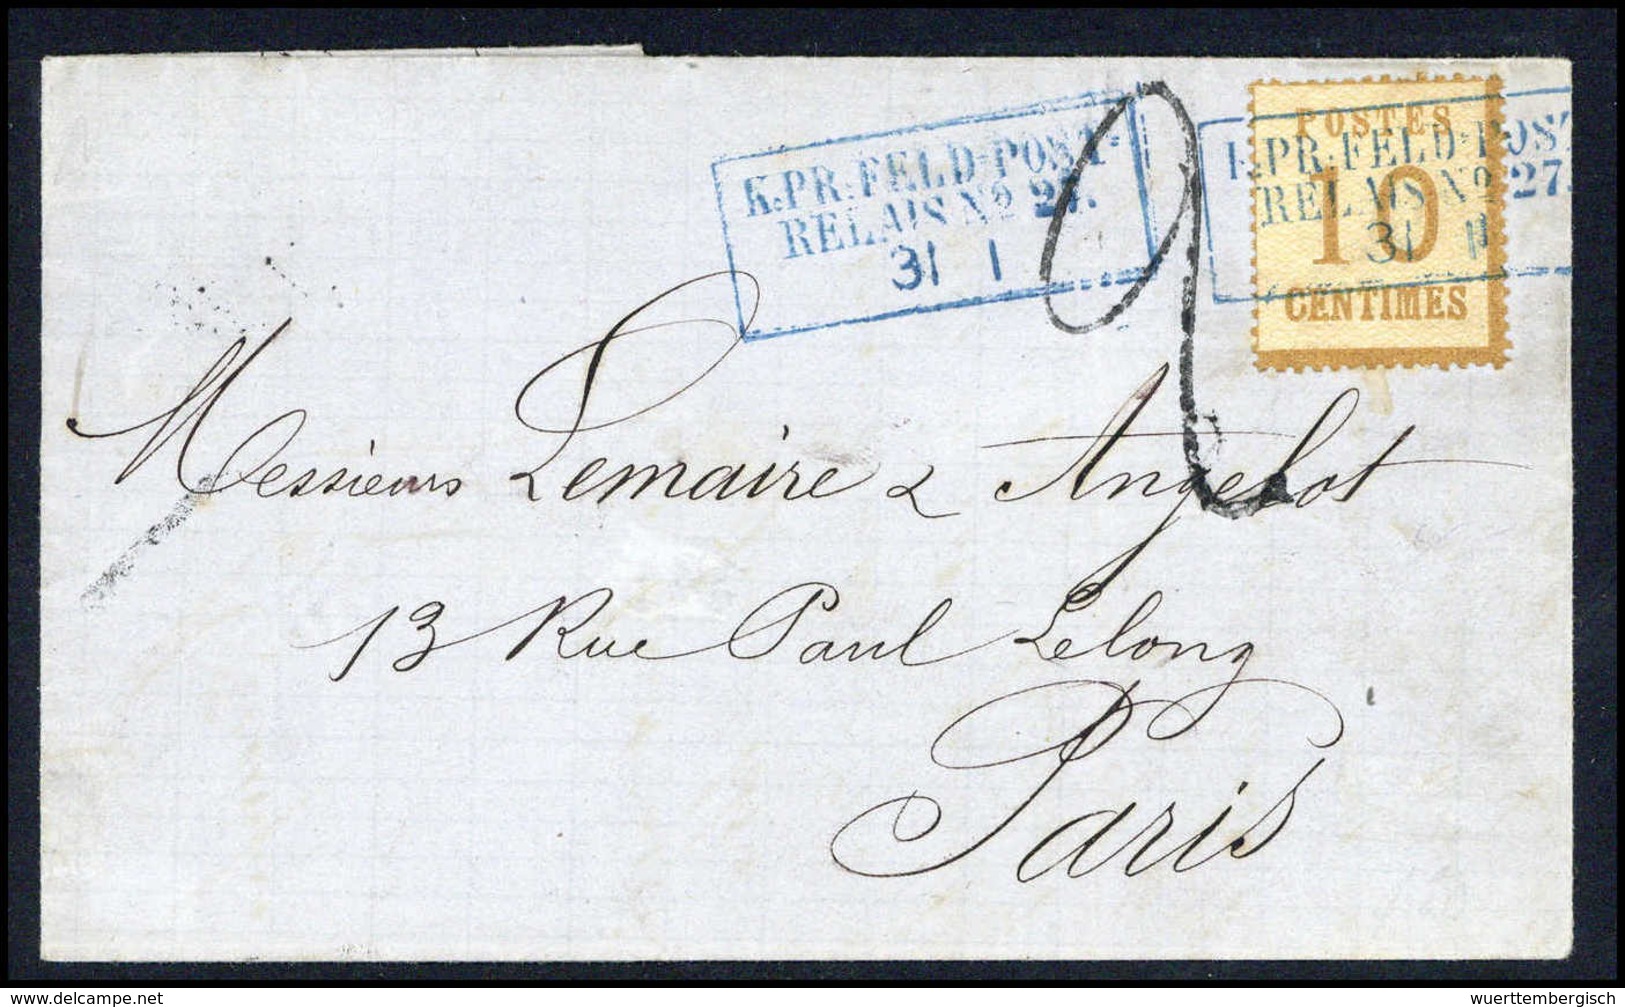 K.PR.FELD-POST-
RELAIS No 27.
31 1
POSTES
10
CENTIMES
K.PR.FELD-POST
RELAIS No 27.
31 1
2
Messieurs Lemaire & Angelot
13 Rue Paul Lelong
Paris
delcampe.net
wuerttembergisch